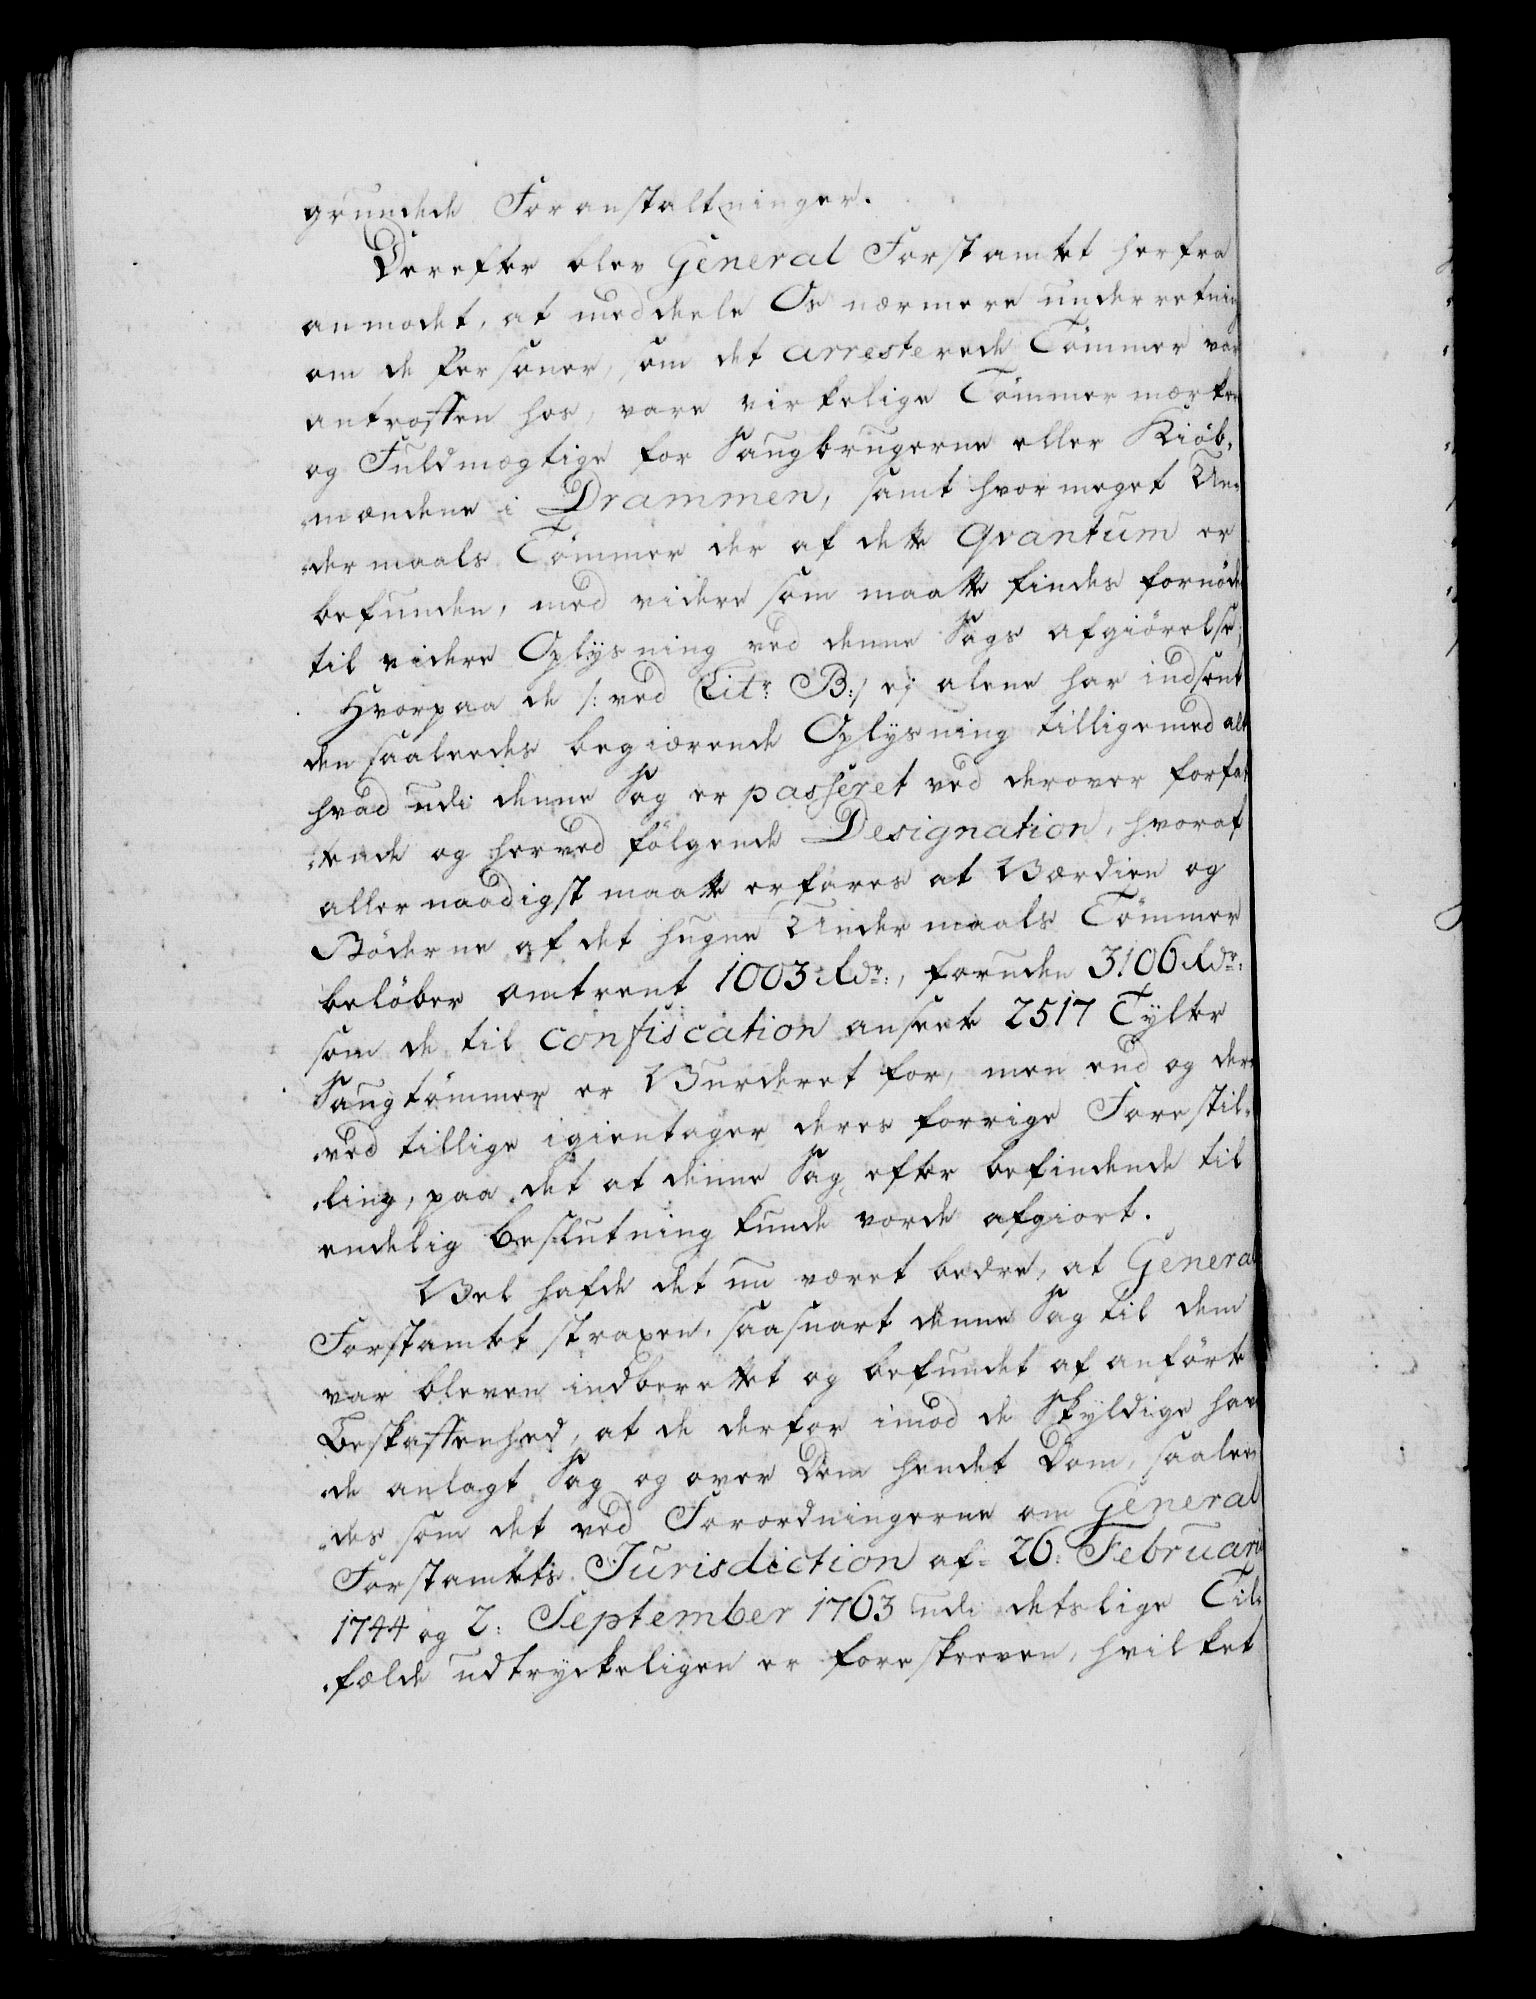 grundede Foranstaltninger.
Derefter blev General Forstamtet herfra
anmodet, at meddeele Os nærmere underretning
om de Personer, som det arresterede Tömmer var
antroffen hos, vare virkelige Tömmermærkere
og Fuldmægtige for Saugbrugerne eller Kiöb-
mændene i Drammen, samt hvor meget Un-
dermaals Tömmer der af dette Qvantum er
befunden, med videre som maatte findes fornöden
til videre Oplysning ved denne Sags afgiörelse,
Hvorpaa de /: ved Litr. B:/ ej alene har indsent
den saaledes begiærende Oplysning tilligemed alt
hvad udi denne Sag er passeret ved derover forfat-
tende og herved fölgende Designation, hvoraf
allernaadigst maatte erfares at Værdien og
Böderne af det hugne Undermaals Tömmer
belöber omtrent 1003 Rdr:, foruden 3106 Rdr:
som de til confiscation ansette 2517 Tylter
Saugtömmer er Vurderet for, men end og der-
ved tillige igientager deres forrige Forestil-
ling, paa det at denne Sag efter befindende til
endelig beslutning kunde vorde afgiort.
Vel hafde det nu været bedre, at General
Forstamtet straxen, saasnart denne Sag til dem
var bleven indberettet og befundet af anförte
Beskaffenhed, at de derfor imod de Skyldige hav-
de anlagt Sag og over Dem hendet Dom, saalee-
des som det ved Forordningerne om General
Forstamtets Jurisdiction af 26: Februarii
1744 og 2: September 1763 udi detslige Til-
fælde udtryckeligen er foreskreven, hvilket